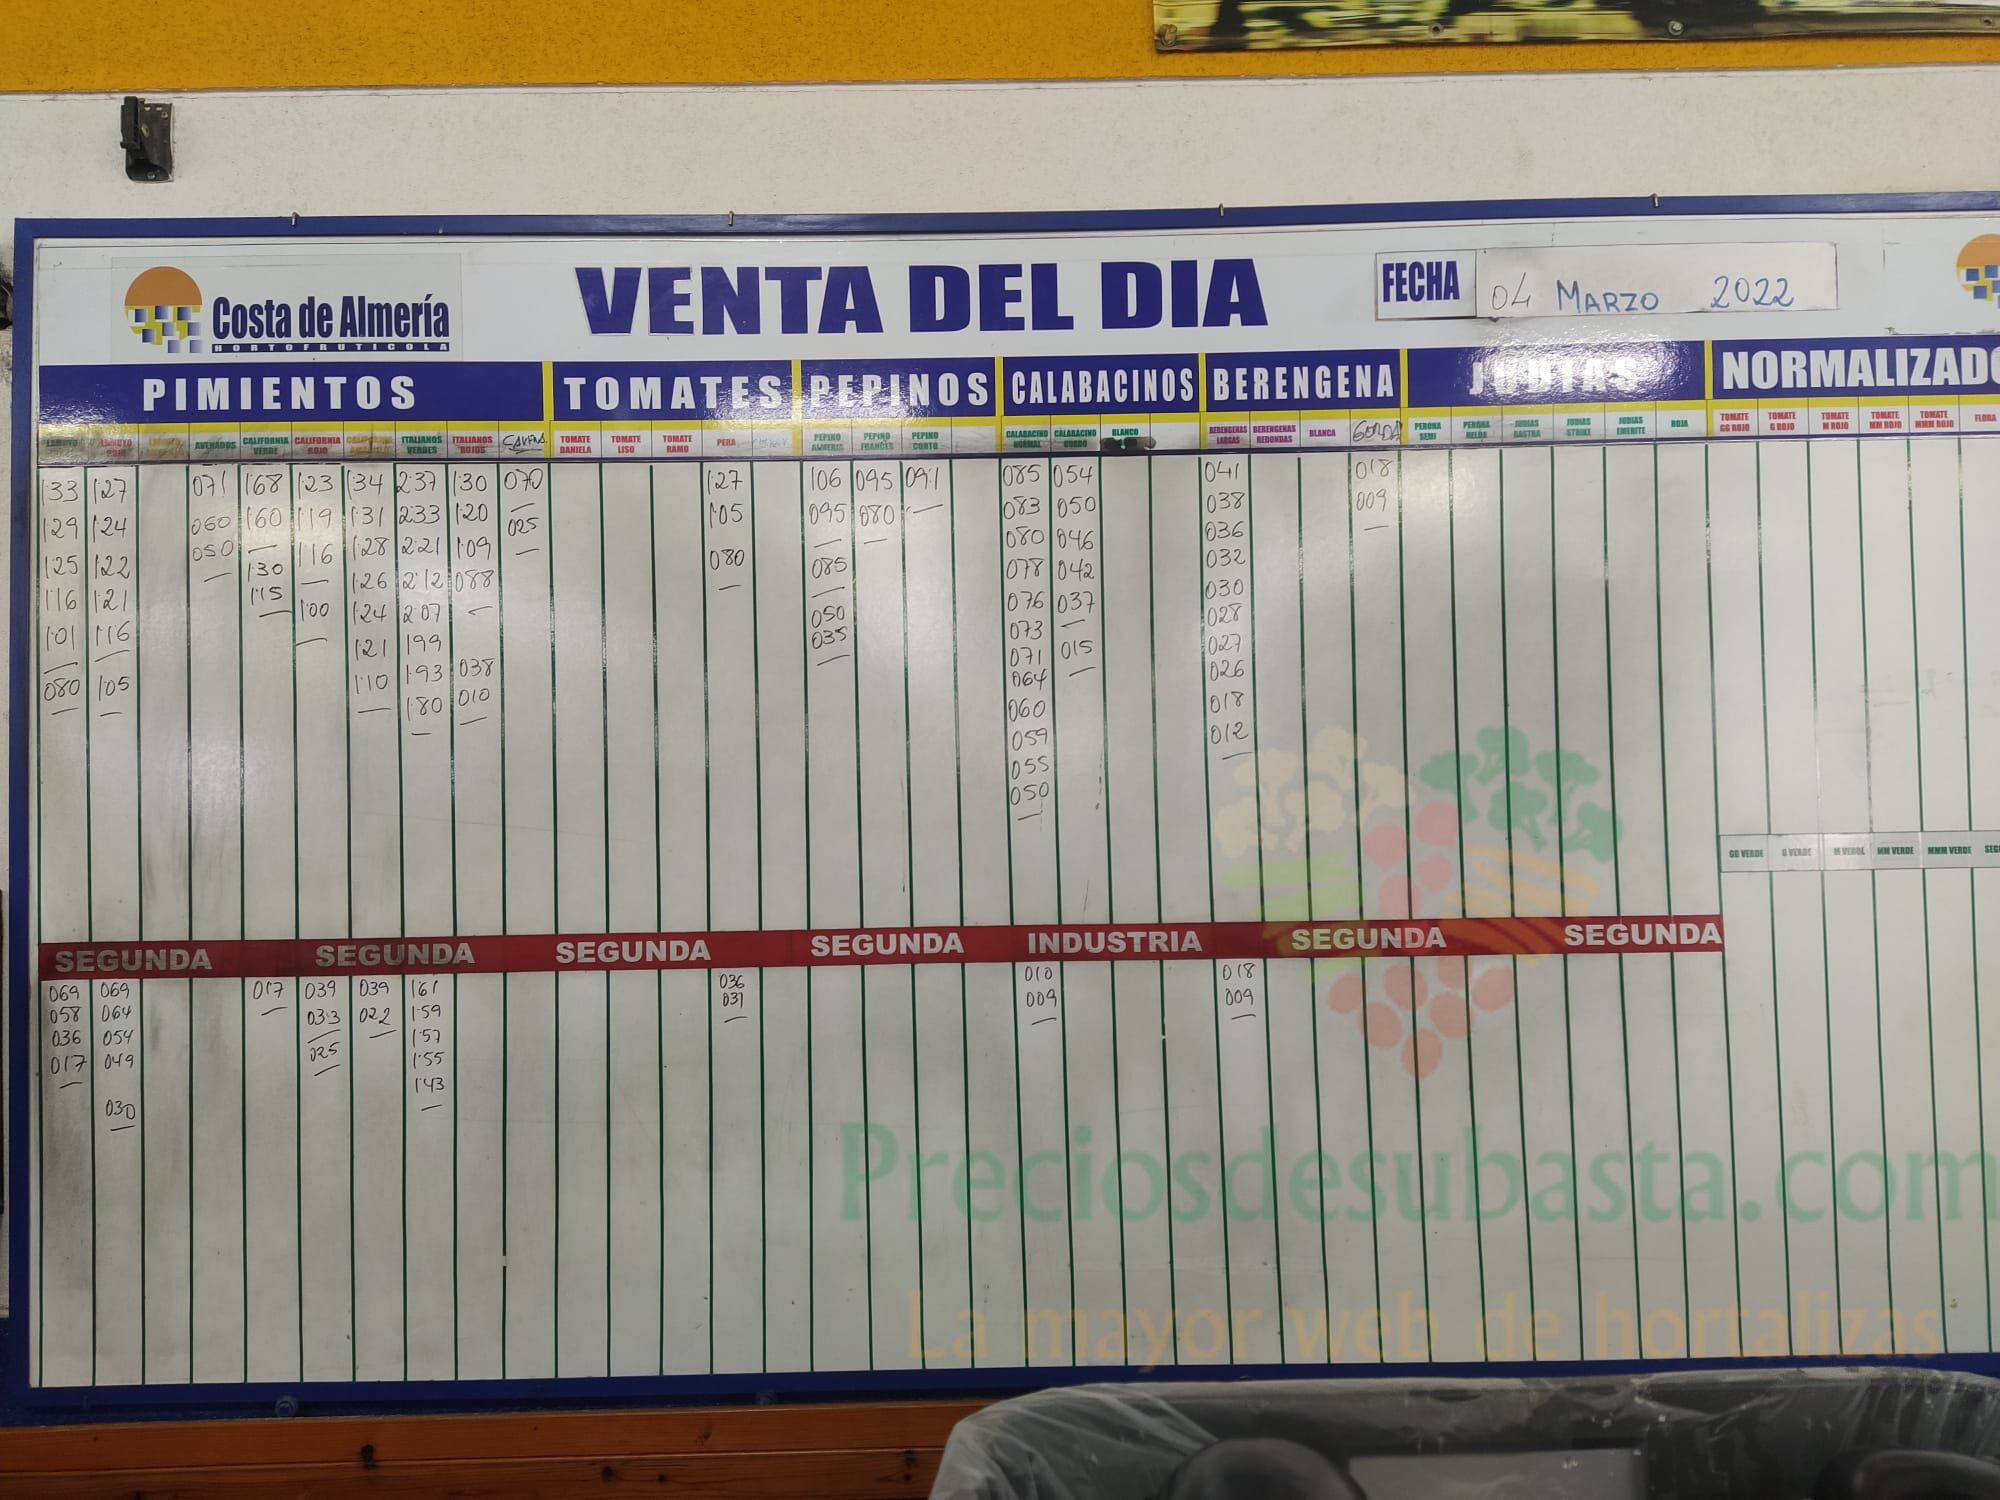 Costa de Almería
HORTOFRUTICOLA
VENTA DEL DIA
FECHA
04 MARZO 2022
PIMIENTOS TOMATES PEPINOS CALABACINOS BERENGENA JUDIAS NORMALIZADO
LAMUYO ROJO
AVENADOS
CALIFORNIA VERDE
CALIFORNIA ROJO
ITALIANOS VERDES
ITALIANOS ROJOS
TOMATE DANIELA
TOMATE LISO
TOMATE RAMO
PERA
PEPINO ALMERIA
PEPINO FRANCES
PEPINO CORTO
CALABACINO NORMAL
CALABACINO GORDO
BLANCO
BERENGENAS LARGAS
BERENGENAS REDONDAS
BLANCA
GORDA
PERONA SEMI
PERONA HELDA
JUDIAS RASTRA
JUDIAS STRIKE
JUDIAS EMERITE
ROJA
TOMATE GG ROJO
TOMATE G ROJO
TOMATE M ROJO
TOMATE MM ROJO
TOMATE MMM ROJO
FLORA
1'33 1'27 071 1'68 1'23 1'34 2'37 1'30 070 1'27 106 095 091 085 054 041 018
1'29 1'24 060 1'60 1'19 1'31 2'33 1'20 025 1'05 095 080 083 050 038 009
1'25 1'22 050 1'30 1'16 1'28 2'21 1'09 080 085 080 046 036
1'16 1'21 1'15 1'00 1'26 2'12 088 050 078 042 032
1'01 1'16 1'24 2'07 038 035 076 037 030
080 1'05 1'21 199 010 073 015 028
1'10 1'93 071 027
1'80 064 026
060 018
059 012
055
050
GG VERDE G VERDE M VERDE MM VERDE MMM VERDE
SEGUNDA SEGUNDA SEGUNDA SEGUNDA INDUSTRIA SEGUNDA SEGUNDA
069 069 017 039 039 161 036 010 018
058 064 033 022 1'59 031 009 009
036 054 025 1'57
017 049 1'55
030 1'43
Preciosdesubasta.com
La mayor web de hortalizas